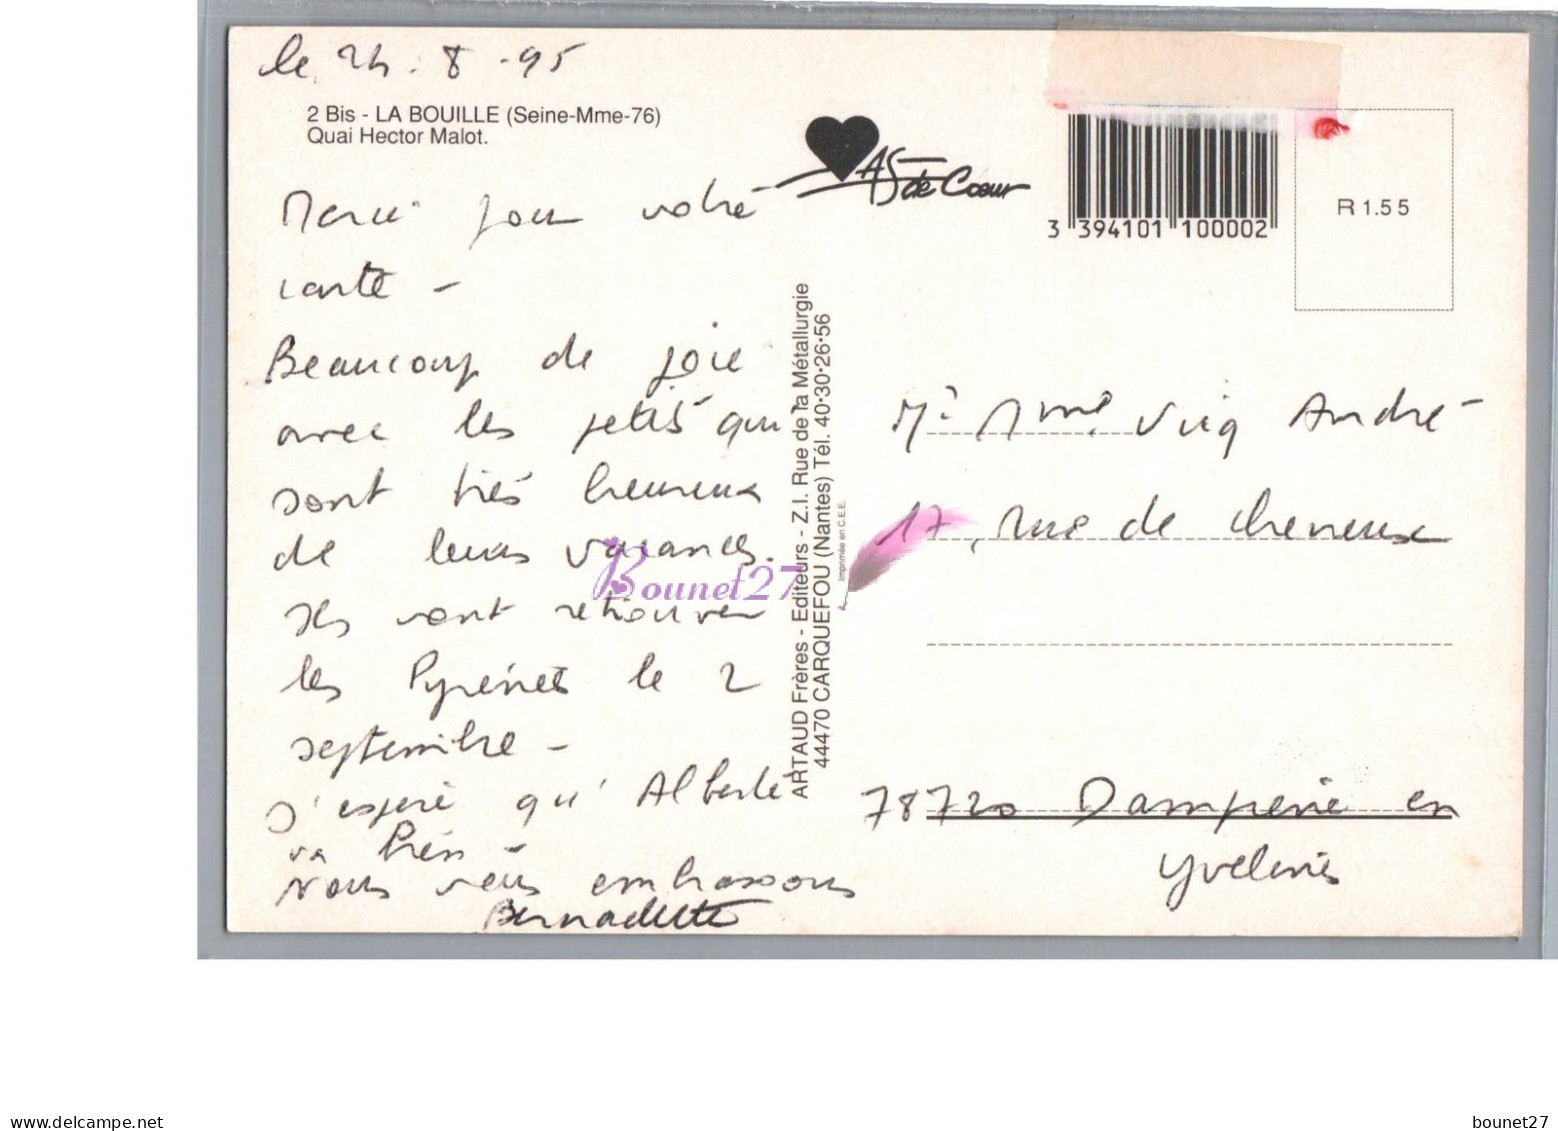 le 24.8.95
2 Bis - LA BOUILLE (Seine-Mme-76)
Quai Hector Malot.
Merci pour votre
carte -
Beaucoup de joie
avec les petits qui
sont très heureux
de leurs vacances.
Ils vont retrouver
les Pyrénées le 2
septembre -
J'espère qu'Alberte
va bien -
Nous vous embrassons
Bernadette
AS de Cœur
3 394101 100002
R 1.55
ARTAUD Frères - Editeurs - Z.I. Rue de la Métallurgie
44470 CARQUEFOU (Nantes) Tél. 40·30·26·56
Imprimée en C.E.E.
Bounet27
Mr Mme Vicq André
17, rue de chevreux
78720 Dampierre en
Yvelines
www.delcampe.net
bounet27